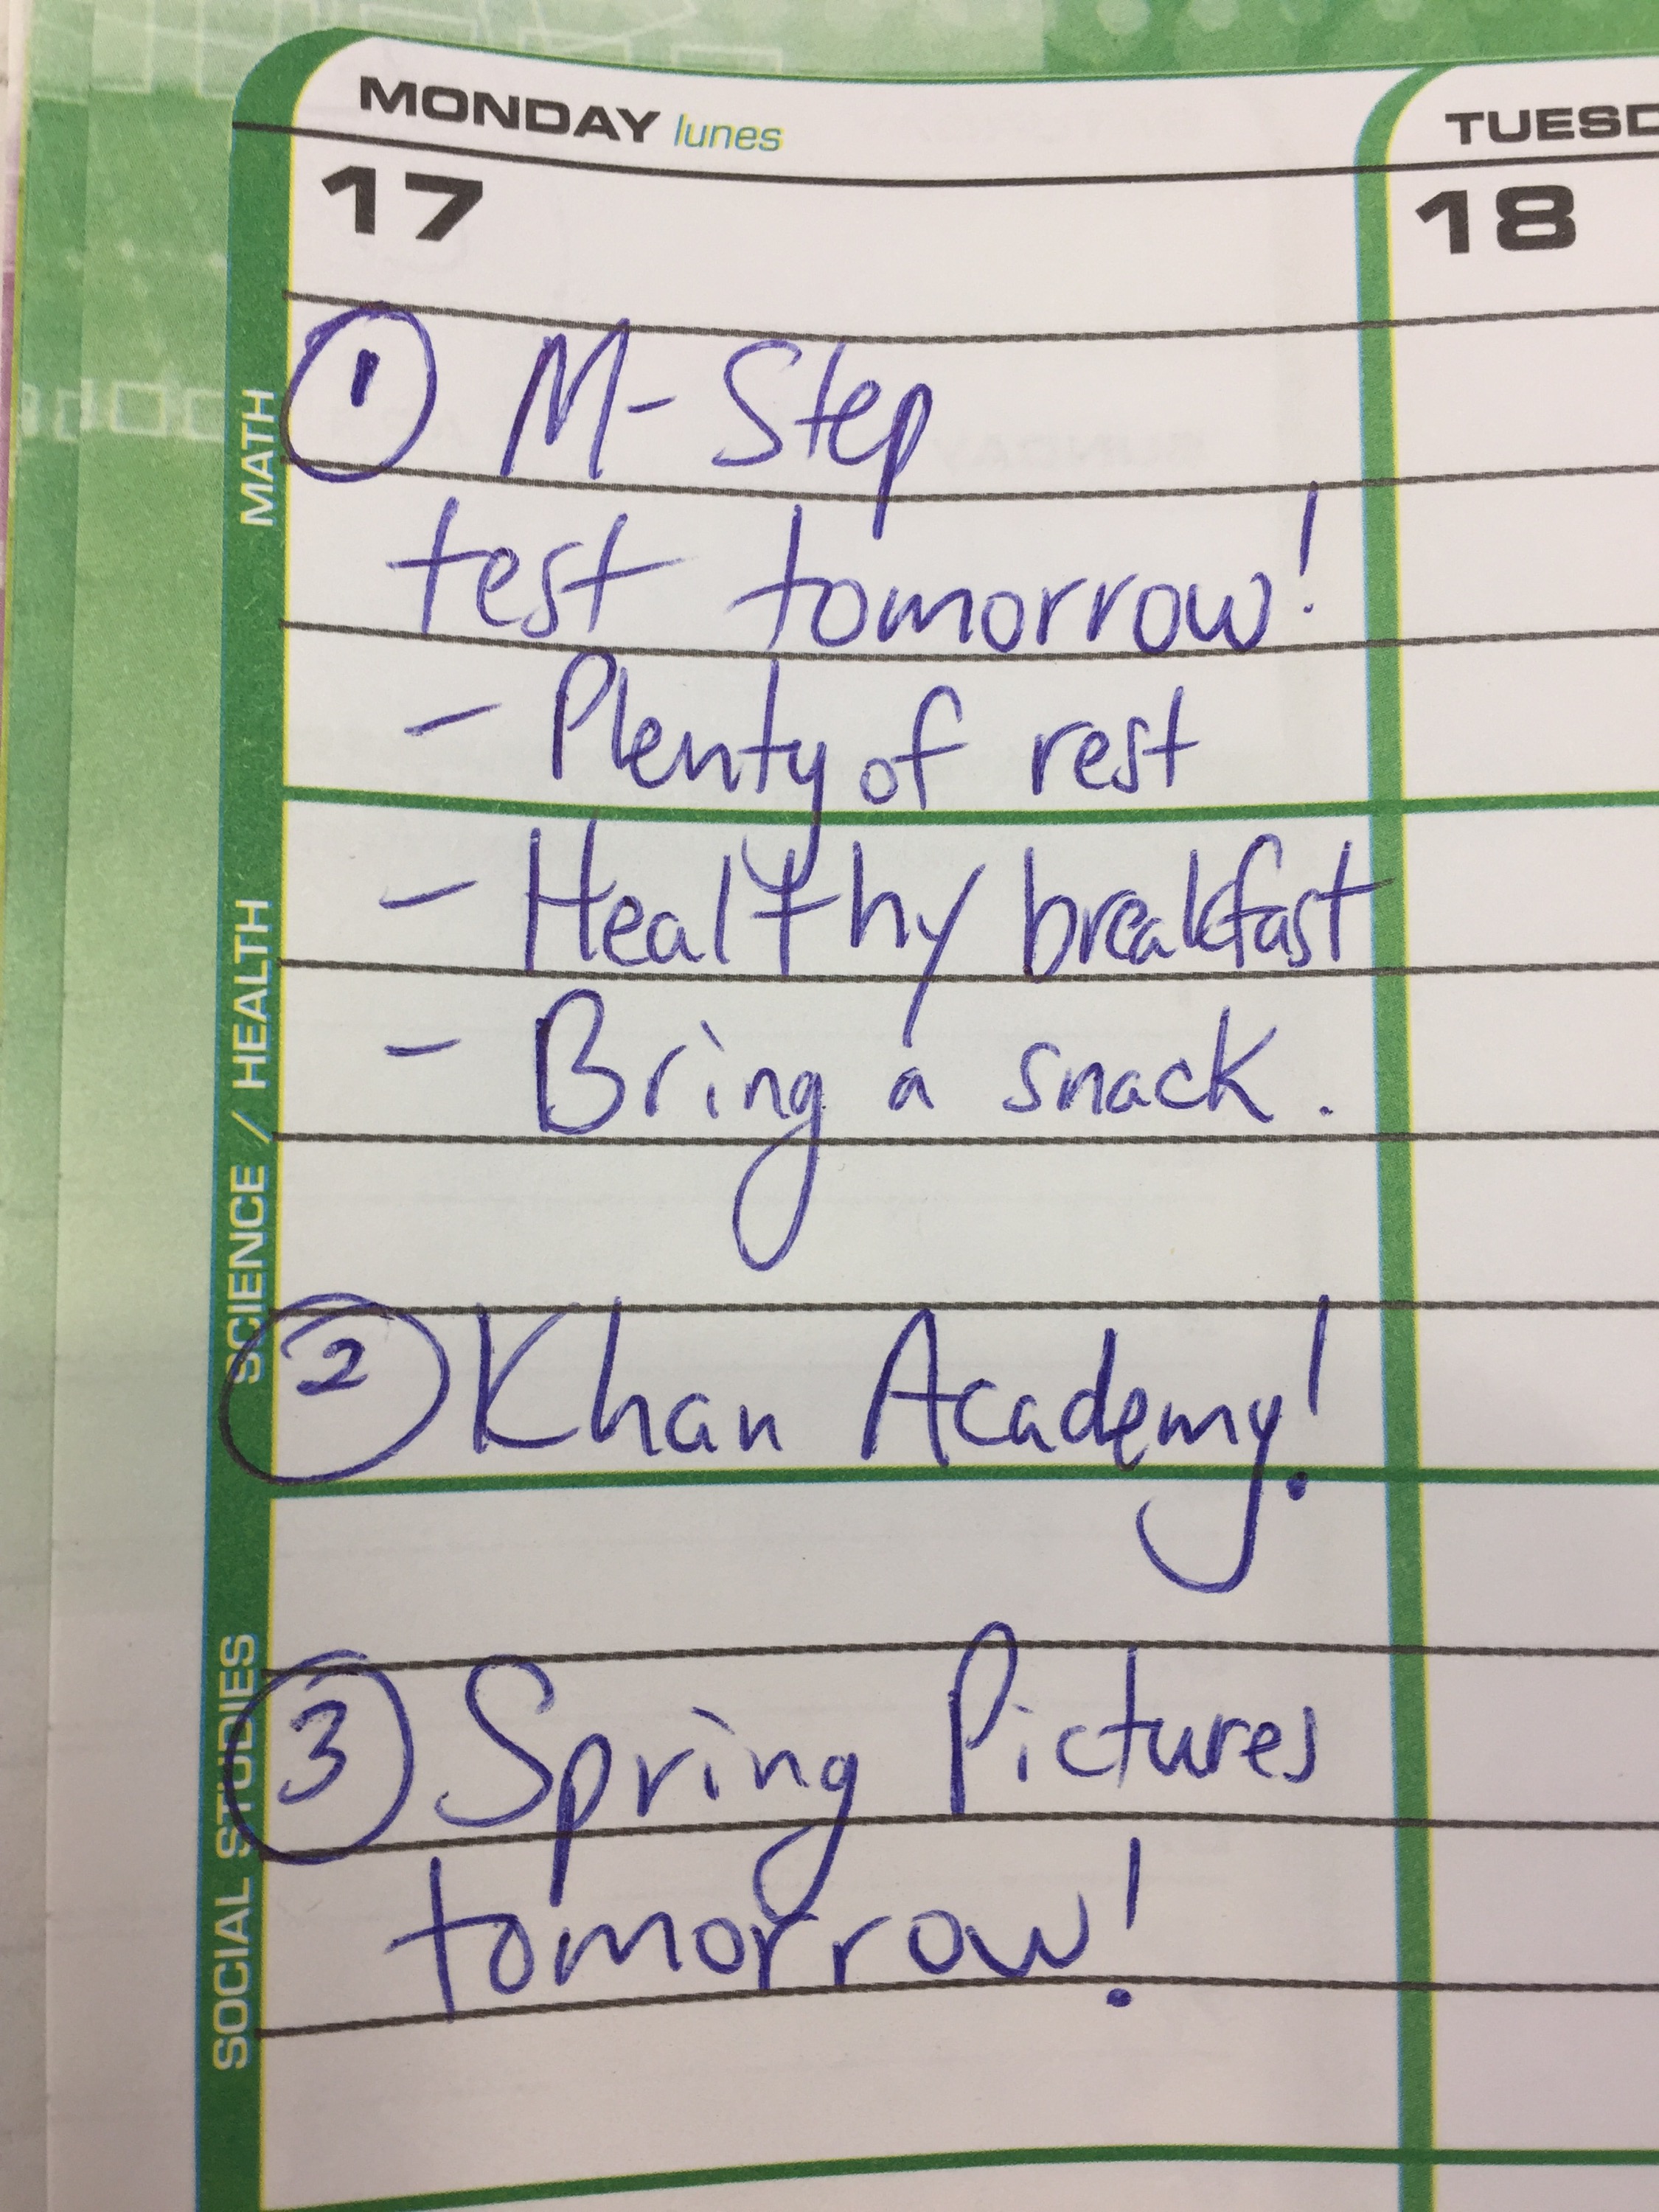 MONDAY lunes
TUESD
17
18
MATH
① M-Step
test tomorrow!
- Plenty of rest
SCIENCE / HEALTH
- Healthy breakfast
- Bring a snack.
② Khan Academy!
SOCIAL STUDIES
③ Spring Pictures
tomorrow!